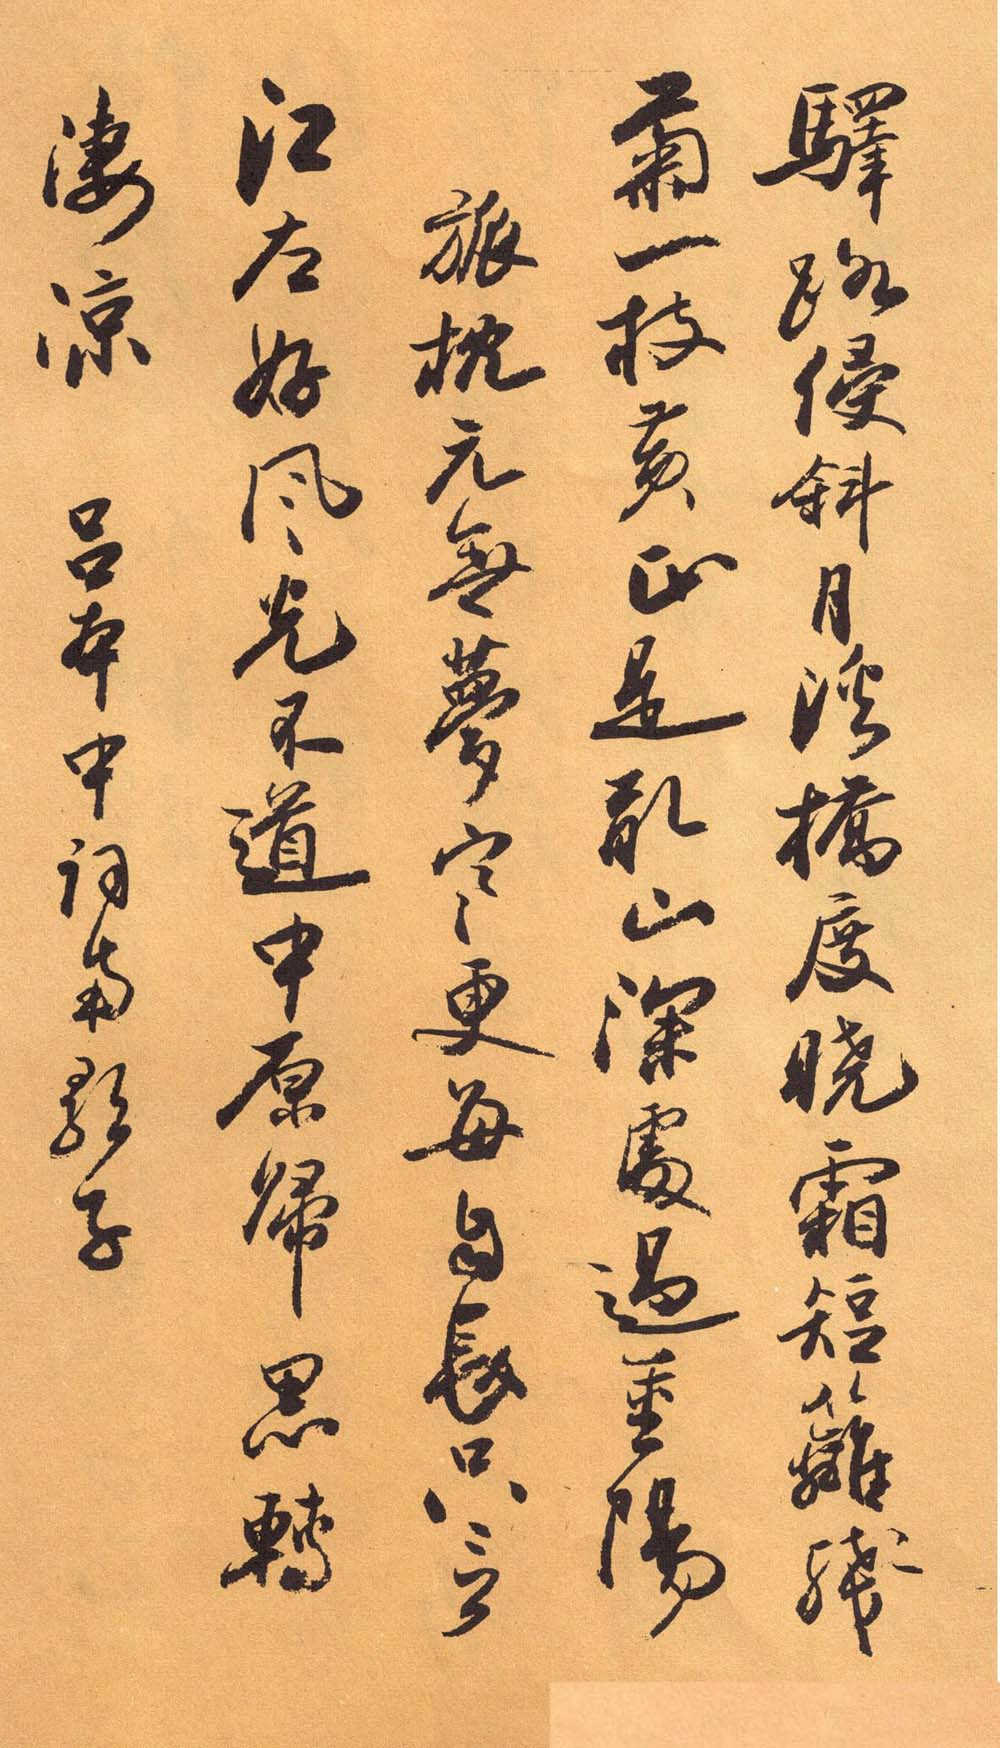 驛路侵斜月溪橋度曉霜短籬殘
菊一枝黄正是亂山深處過重陽
旅枕元無夢寒更每自長只言
江左好風光不道中原歸思轉
淒涼 呂本中詞南歌子